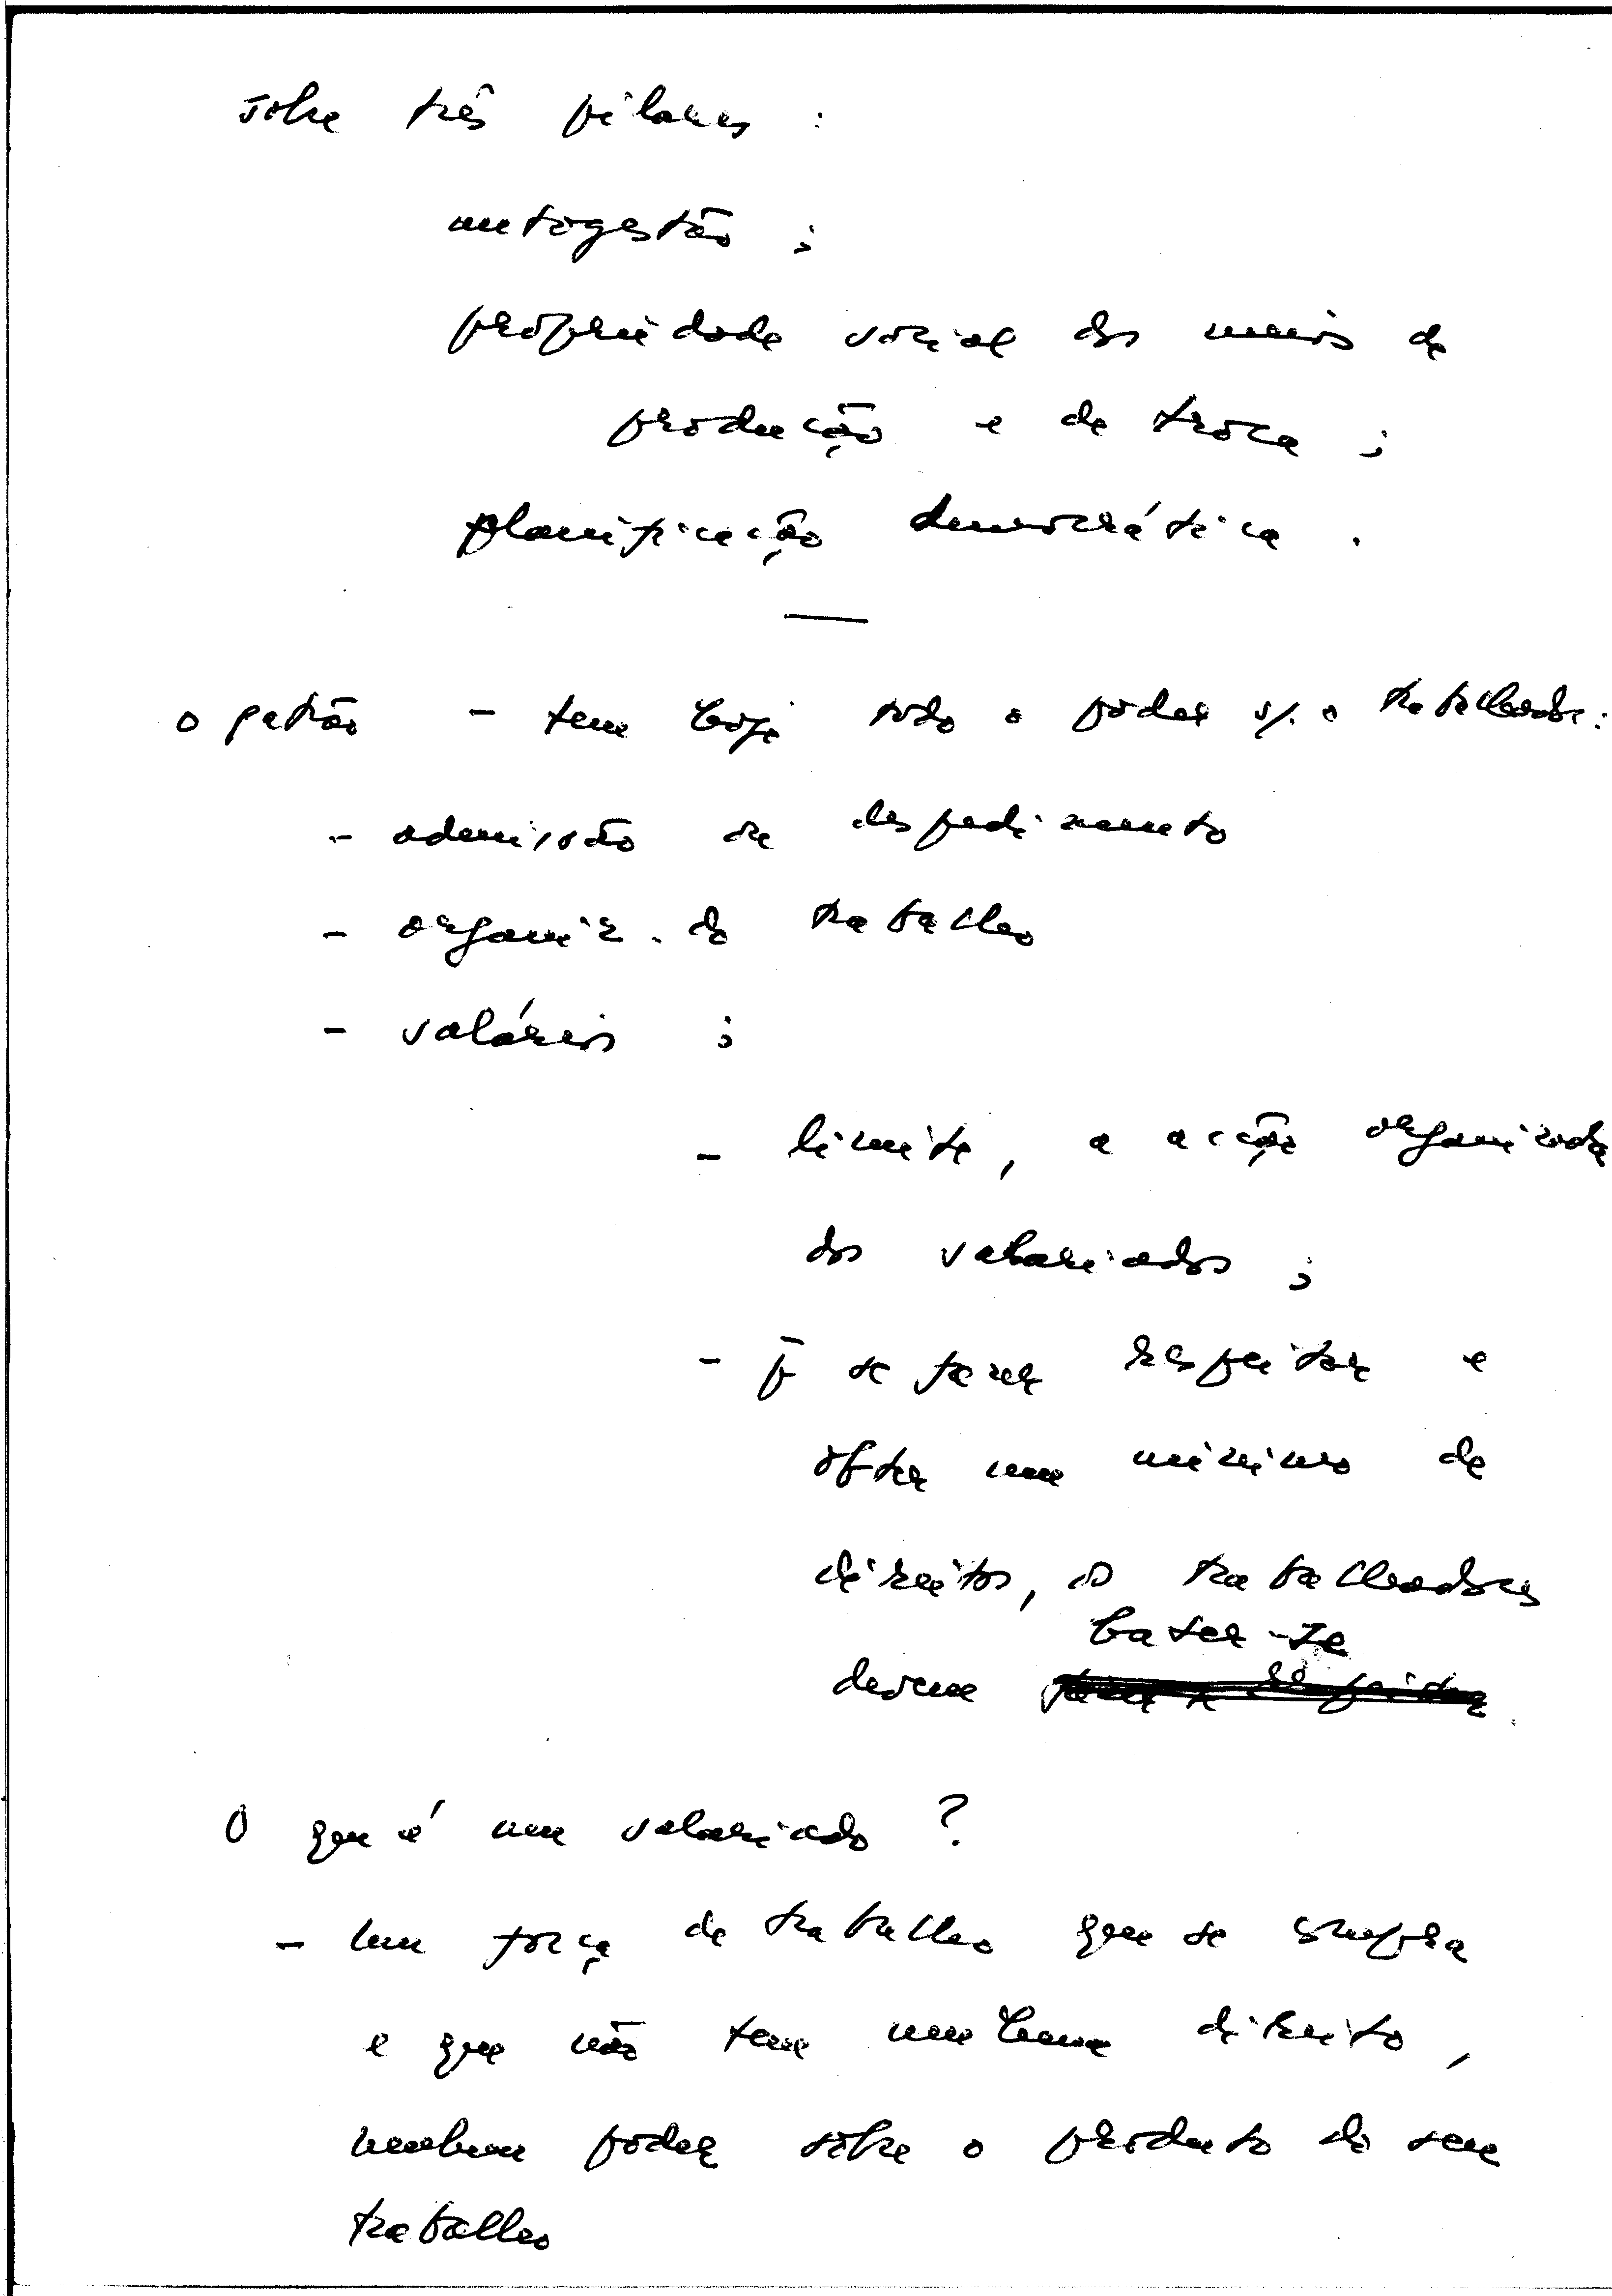 sobre três pilares :
autogestão ;
propriedade social dos meios de
produção e de troca ;
planificação democrática .
o patrão - tem hoje todo o poder s/. o trabalhador :
- admissão ou despedimento
- organiz. do trabalho
- salários ;
- limite, a acção organizada
dos salariados ;
- p̄ se fazer respeitar e
obter um mínimo de
direitos, os trabalhadores
bater-se
devem fazer-se respeitar
O que é um salariado ?
- Um força de trabalho que se compra
e que não tem nenhum direito,
nenhum poder sobre o produto do seu
trabalho